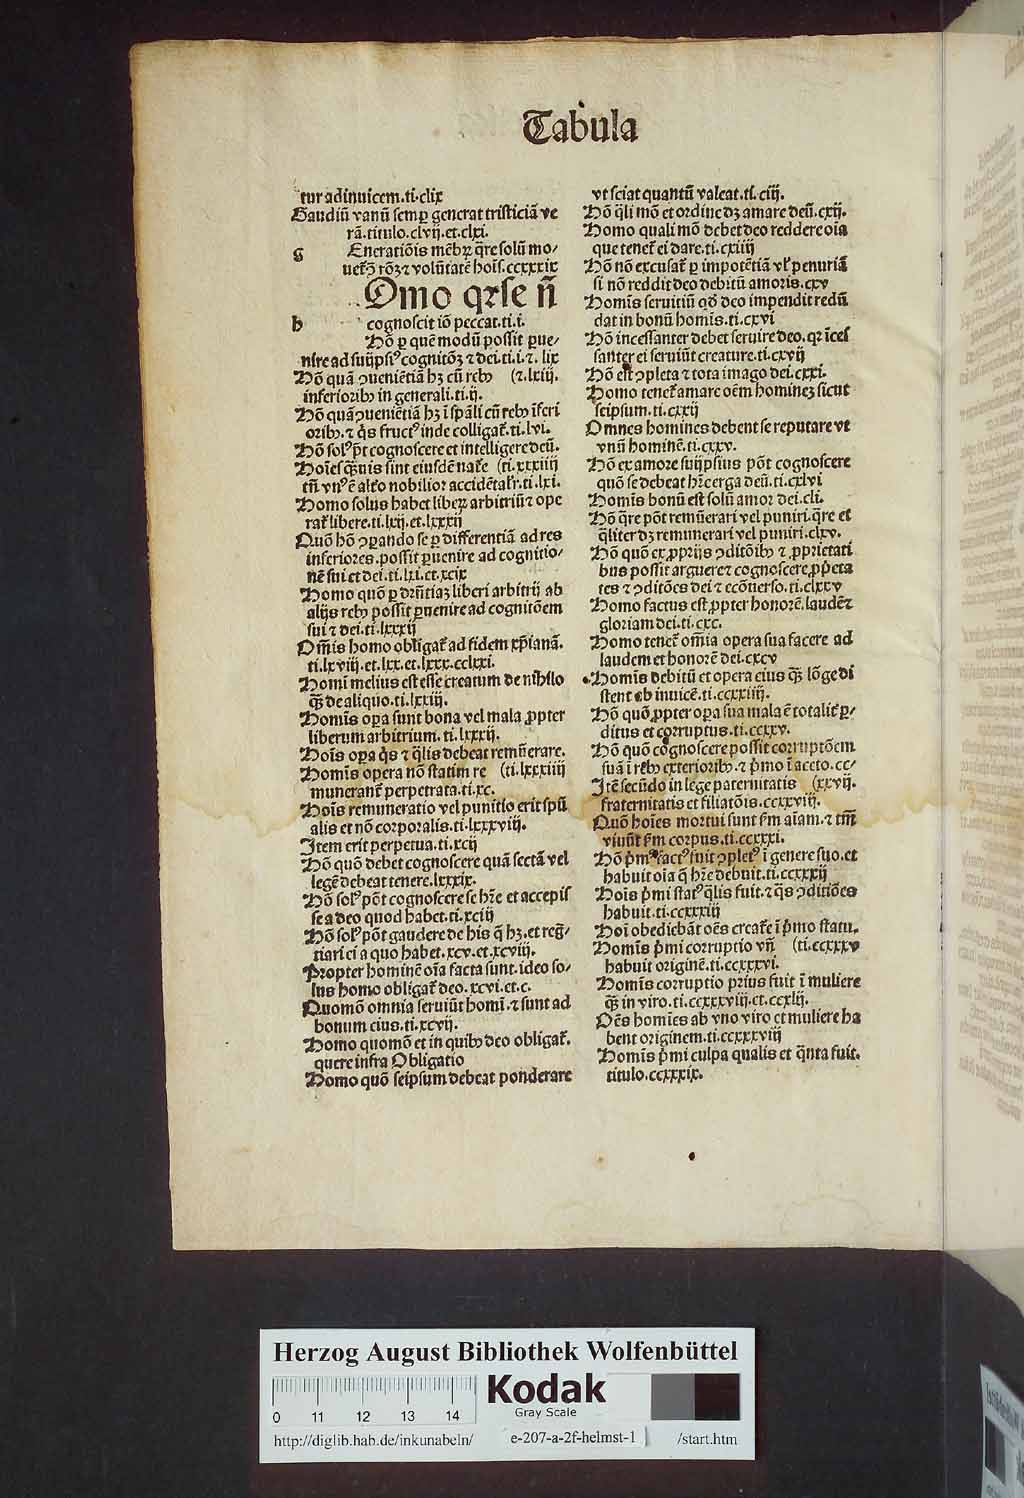 Tabula
tur adinuicem.ti.clix
Gaudiū vanū semꝑ generat tristiciā ve
rā.titulo.clvij.et.clxi.
g Eneratiōis mēbꝝ q̄re solū mo/
uet̄ ꝯ rōꝫ ⁊ volūtatē hoīs.ccxxxix
Omo qꝛ se n̄
h cognoscit iō peccat.ti.i.
Hō ꝑ quē modū possit ꝑue/
nire ad suijpsiꝰ cognitōꝫ ⁊ dei.ti.i.⁊. lix
Hō quā ꝯueniētiā hꝫ cū rebꝰ (⁊.lxiij.
inferioribꝰ in generali.ti.ij.
Hō quā ꝯueniētiā hꝫ ī sꝑali cū rebꝰ īferi
oribꝰ.⁊ q̄s fructꝰ inde colligat̄.ti.lvi.
Hō solꝰ pōt cognoscere et intelligere deū.
Hoīes q̄uis sint eiusdē nat̄e (ti.xxxiiij
tn̄ vnꝰ ē alt̄o nobilior accidētalr̄.ti.lxi.
Homo solus habet liberꝝ arbitriū ⁊ ope
rat̄ libere.ti.lxij.et.lxxxij
Quō hō ꝯꝑando se ꝑ differentiā ad res
inferiores.possit ꝑuenire ad cognitio/
nē sui et dei.ti.lxi.et.xcix
Homo quō ꝑ dr̄ntiaꝫ liberi arbitrij ab
alijs rebꝰ possit ꝑuenire ad cognitōem
sui ⁊ dei.ti.lxxxij
Om̄is homo obligat̄ ad fidem xp̄ianā.
ti.lxviij.et.lxx.et.lxxx.cclxxi.
Homī melius est esse creatum de nihilo
q̄ꝫ de aliquo.ti.lxxiij.
Homīs oꝑa sunt bona vel mala ꝓpter
liberum arbitrium. ti.lxxxij.
Hoīs oꝑa q̄s ⁊ q̄lis debeat remūerare.
Homīs opera nō statim re (ti.lxxxiiij
munerant̄ perpetrata.ti.xc.
Hoīs remuneratio vel punitio erit spū
alis et nō corporalis.ti.lxxxviij.
Item erit perpetua.ti.xcij
Hō quō debet cognoscere quā sectā vel
legē debeat tenere.lxxxix.
Hō solꝰ pōt cognoscere se hr̄e et accepis
se a deo quod habet.ti.xciij
Hō solꝰ pōt gaudere de his q̄ hꝫ.et reḡ/
tiari ei a quo habet.xcv.et.xcviij.
Propter hominē oīa facta sunt.ideo so/
lus homo obligat̄ deo.xcvi.et.c.
Quomō omnia seruiūt homī.⁊ sunt ad
bonum eius.ti.xcvij.
Homo quomō et in quibꝰ deo obligat̄.
quere infra Obligatio
Homo quō seipsum debeat ponderare
vt sciat quantū valeat.ti. ciij.
Hō q̄li mō et ordine dꝫ amare deū.cxij.
Homo quali mō debet deo reddere oīa
que tenet̄ ei dare.ti.cxiiij
Hō nō excusat̄ ꝑ impotētiā vl̓ penuriā
si nō reddit deo debitū amoris.cxv
Homīs seruitiū qđ deo impendit redū
dat in bonū homīs.ti.cxvi
Hō incessanter debet seruire deo.qꝛ īces
santer ei seruiūt creature.ti.cxvij
Hō est ꝯpleta ⁊ tota imago dei.cxxi.
Homo tenet̄ amare oēm hominez sicut
seipsum.ti.cxxij
Omnes homines debent se reputare vt
vnū hominē.ti.cxxv.
Hō ex amore suijpsius pōt cognoscere
quō se debeat hr̄e erga deū.ti.cxlvi
Homīs bonū est solū amor dei.cli.
Hō q̄re pōt remūerari vel puniri.q̄re et
q̄liter dꝫ remunerari vel puniri.clxv.
Hō quō ex ꝓprijs ꝯditōibꝰ ⁊ ꝓprietati
bus possit arguere ⁊ cognoscere ꝓpēta
tes ⁊ ꝯditōes dei ⁊ ecōuerso.ti.clxxv
Homo factus est ꝓpter honorē.laudē ⁊
gloriam dei.ti.cxc.
Homo tenet̄ om̄ia opera sua facere ad
laudem et honorē dei.cxcv
Homīs debitū et opera eius q̄ꝫ lōge di
stent ab inuicē.ti.ccxxiiij.
Hō quō ꝓpter oꝑa sua mala ē totalit̄ ꝑ/
ditus et corruptus.ti.ccxxv.
Hō quō cognoscere possit corruptōem
suā ī rebꝰ exterioribꝰ.⁊ p̄mo ī aceto.cc/
Itē secūdo in lege paternitatis (xxvij.
fraternitatis et filiatōis.ccxxviij.
Quō hoīes mortui sunt ẜm aīam.⁊ tm̄
viuūt ẜm corpus.ti.ccxxxi.
Hō p̄mꝰ factꝰ fuit ꝯpletꝰ ī genere suo.et
habuit oīa q̄ hr̄e debuit.ti.ccxxxij
Hoīs p̄mi statꝰ q̄lis fuit.⁊ q̄s ꝯditiōes
habuit.ti.ccxxxiij
Hoī obediebāt oēs creat̄e ī p̄mo statu.
Homīs p̄mi corruptio vn̄ (ti.ccxxxv
habuit originē.ti.ccxxxvi.
Homīs corruptio prius fuit ī muliere
q̄ꝫ in viro.ti.ccxxxviij.et.ccxlij.
Oēs homīes ab vno viro et muliere ha
bent originem.ti.ccxxxviij
Homīs p̄mi culpa qualis et q̄nta fuit.
titulo.ccxxxix.
Herzog August Bibliothek Wolfenbüttel
Kodak
Gray Scale
0 11 12 13 14
http://diglib.hab.de/inkunabeln/ e-207-a-2f-helmst-1 /start.htm